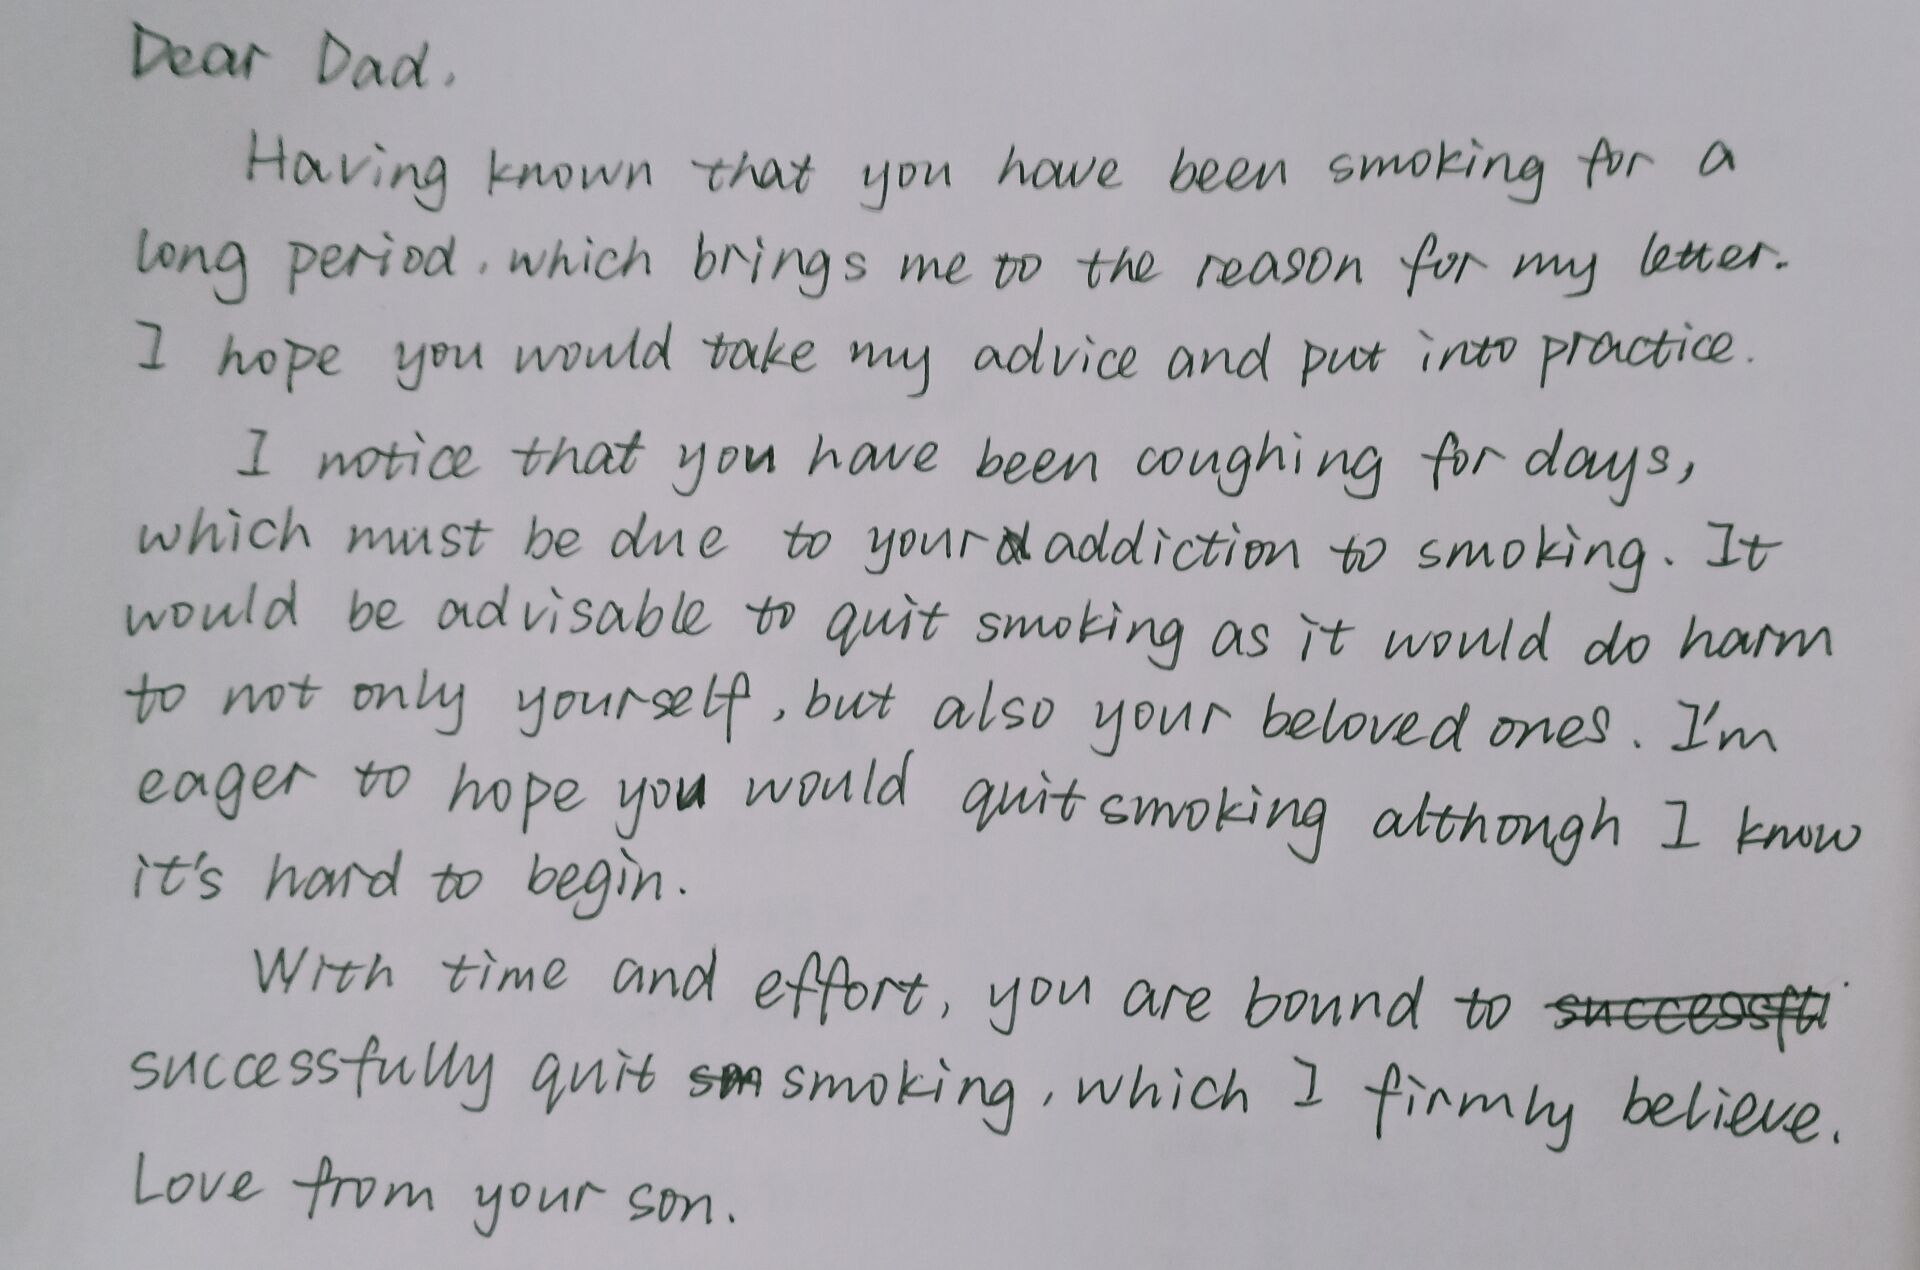 Dear Dad,
Having known that you have been smoking for a
long period, which brings me to the reason for my letter.
I hope you would take my advice and put into practice.
I notice that you have been coughing for days,
which must be due to your addiction to smoking. It
would be advisable to quit smoking as it would do harm
to not only yourself, but also your beloved ones. I'm
eager to hope you would quit smoking although I know
it's hard to begin.
With time and effort, you are bound to
successfully quit smoking, which I firmly believe.
Love from your son.